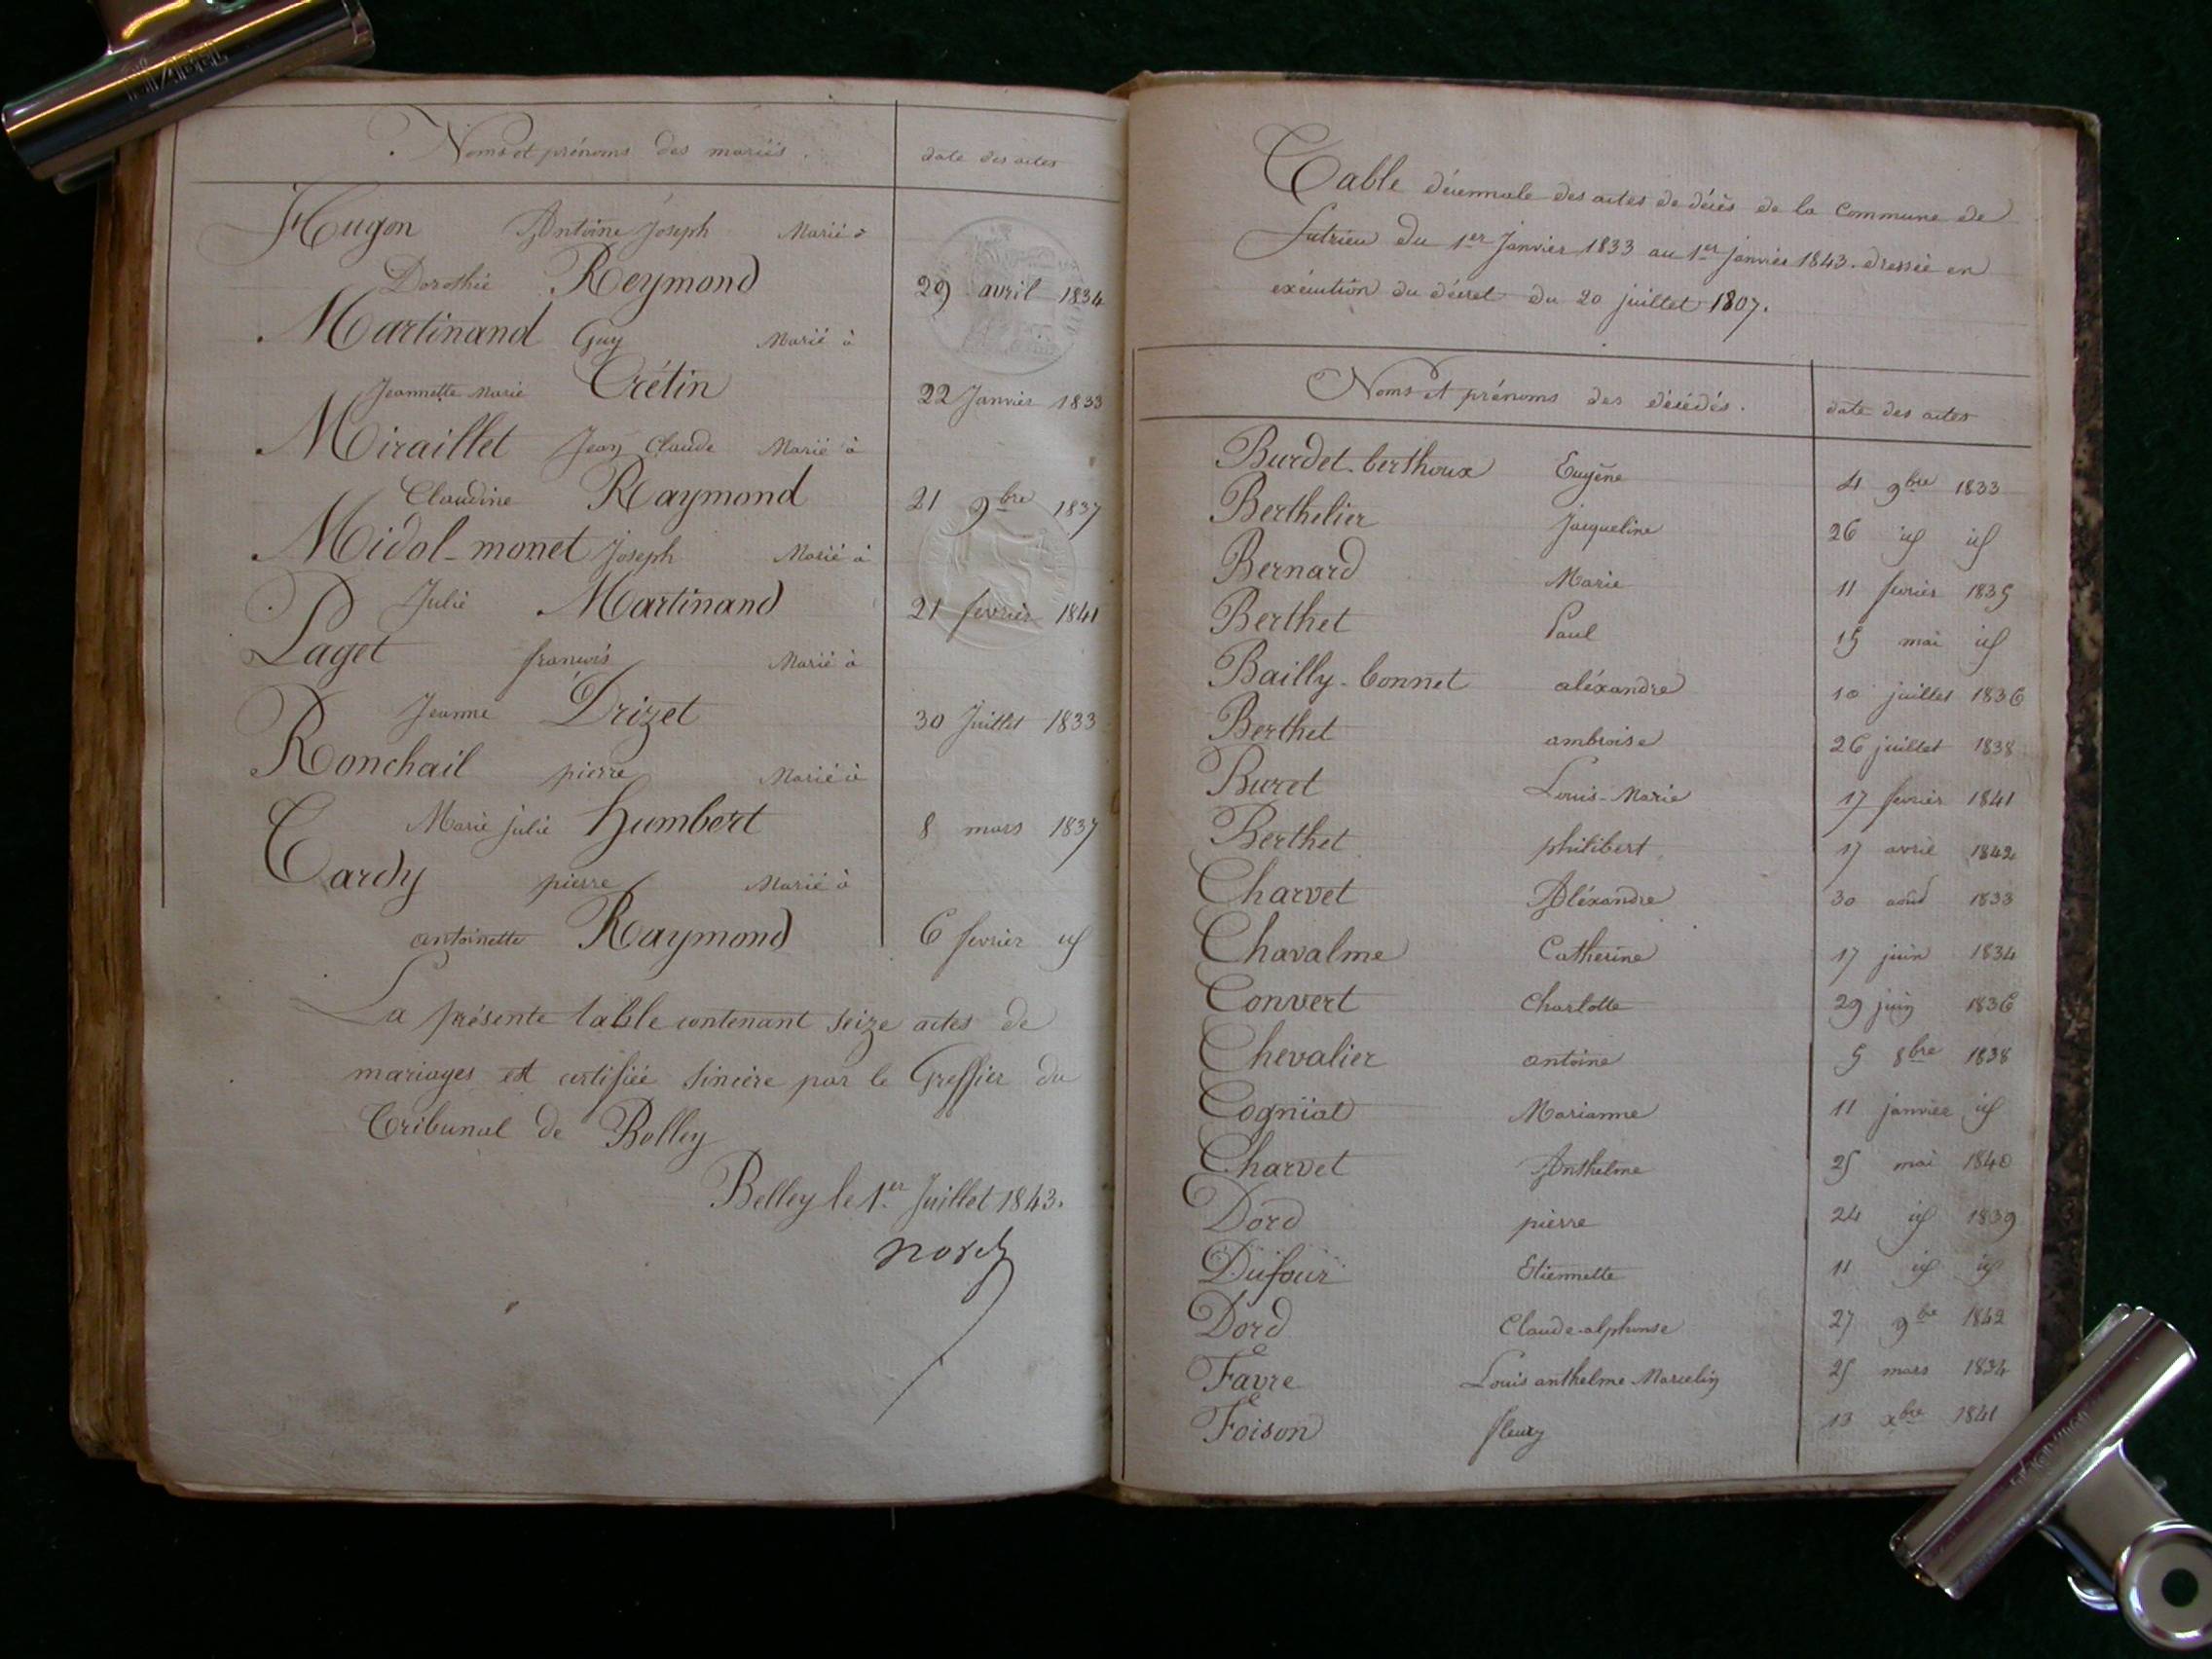 Noms et prénoms des mariés.
date des actes
Hugon Antoine Joseph Marié à
Dorothée Reymond 29 avril 1834
Martinand Guy Marié à
Jeannette Marie Crétin 22 Janvier 1833
Miraillet Jean Claude Marié à
Claudine Raymond 21 9bre 1837
Midol-monet Joseph Marié à
Julie Martinand 21 fevrier 1841
Paget francois Marié à
Jeanne Drizet 30 Juillet 1833
Ronchail pierre Marié à
Marie julie humbert 8 mars 1837
Tardy pierre Marié à
antoinette Raymond 6 fevrier id
La présente table contenant seize actes de
mariages est certifiée Sincère par le Greffier du
Tribunal de Belley
Belley le 1er Juillet 1843.
Table décennale des actes de décès de la commune de
Sutrieu du 1er Janvier 1833 au 1er janvier 1843. dressée en
exécution du décret du 20 juillet 1807.
Noms et prénoms des décédés.
date des actes
Burdet-berthoux Eugène 4 9bre 1833
Berthelier Jacqueline 26 id id
Bernard Marie 11 fevrier 1835
Berthet Paul 15 mai id
Bailly-bonnet aléxandre 10 juillet 1836
Berthet ambroise 26 juillet 1838
Buret Louis-Marie 17 fevrier 1841
Berthet philibert 17 avril 1842
Charvet Aléxandre 30 août 1833
Chavalme Catherine 17 juin 1834
Convert Charlotte 29 juin 1836
Chevalier antoine 5 8bre 1838
Cogniat Marianne 11 janvier id
Charvet Anthelme 25 mai 1840
Dord pierre 24 id 1839
Dufour Etiennette 11 id id
Dord Claude-alphonse 27 9bre 1842
Favre Louis anthelme Marcelin 25 mars 1834
Foison fleury 13 xbre 1841